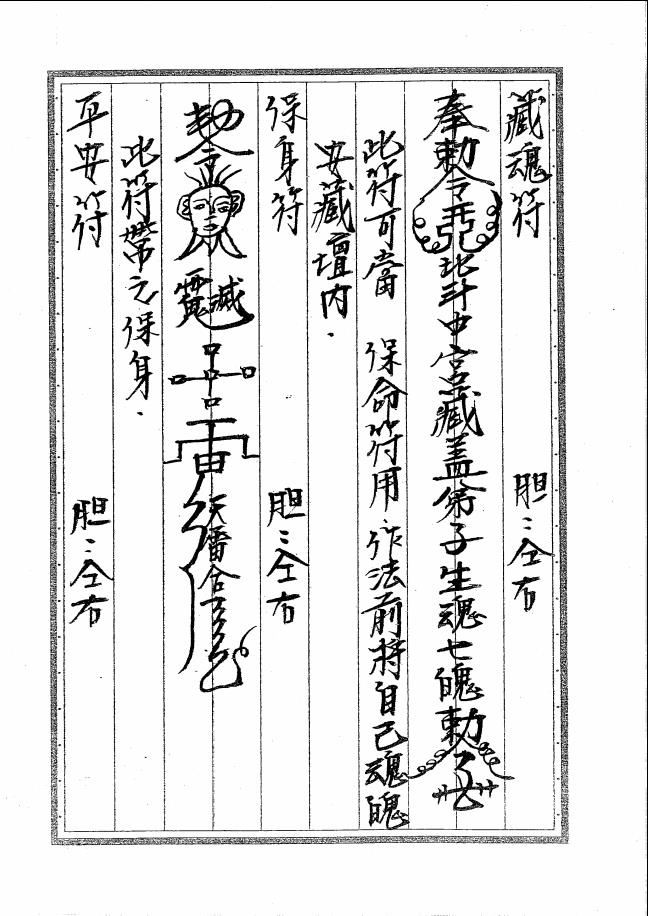 藏魂符
胆：仝右
奉勅令
北斗中宮藏盖弟子生魂七魄勅令
此符可當 保命符用、作法前將自己魂魄
安藏壇内.
保身符
胆：仝右
勅令
此符帶之保身.
平安符
胆：仝右